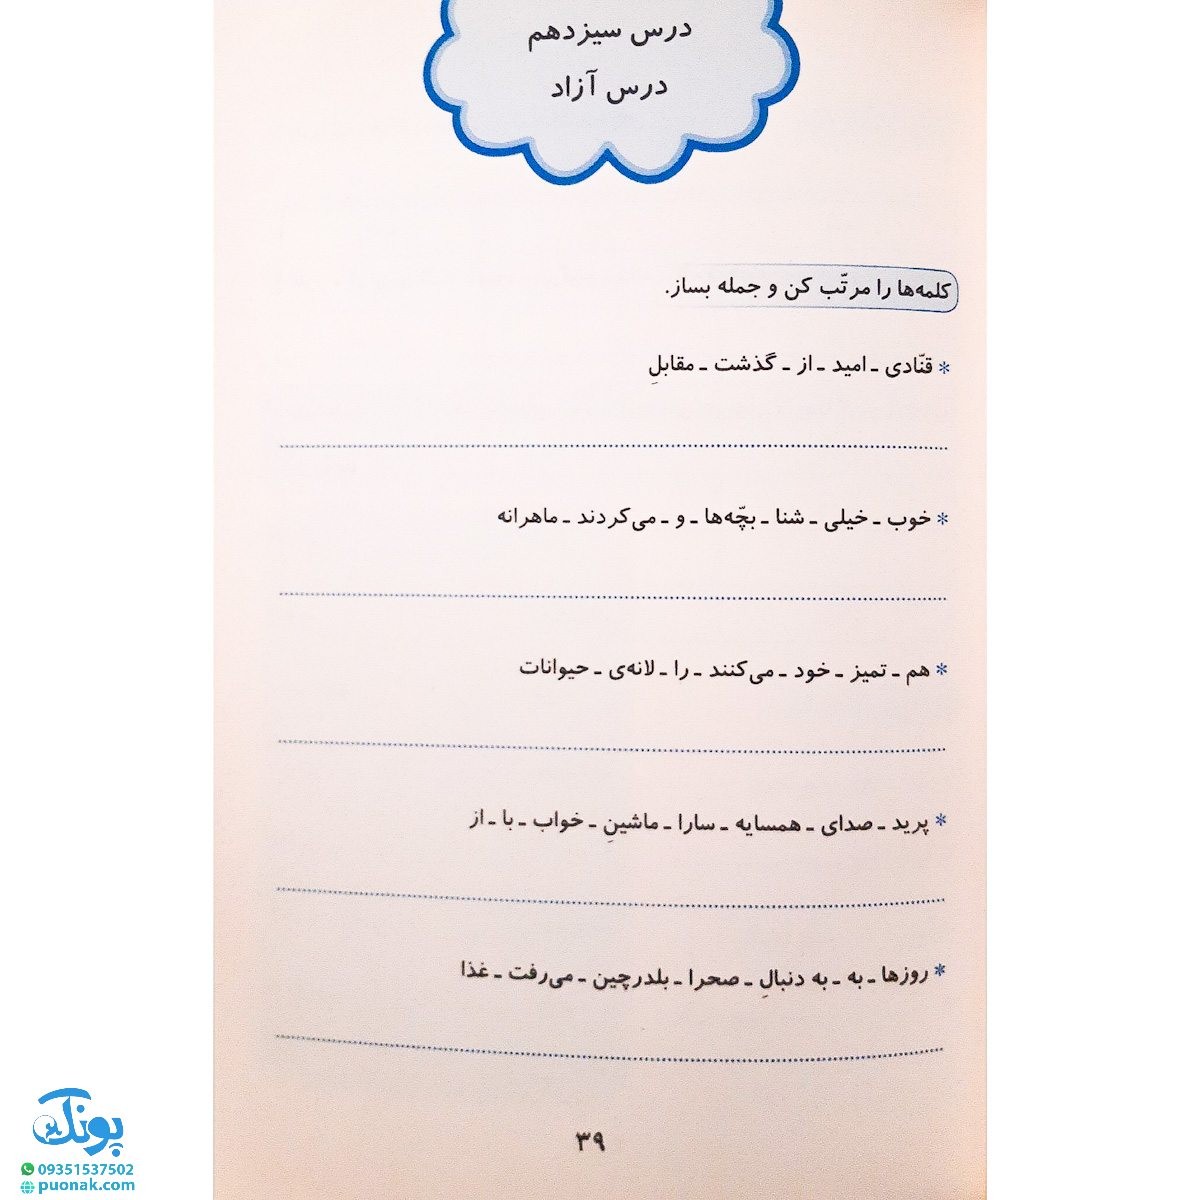 درس سیزدهم
درس آزاد
کلمه‌ها را مرتّب کن و جمله بساز.
* قنّادی ـ امید ـ از ـ گذشت ـ مقابلِ
* خوب ـ خیلی ـ شنا ـ بچّه‌ها ـ و ـ می‌کردند ـ ماهرانه
* هم ـ تمیز ـ خود ـ می‌کنند ـ را ـ لانه‌ی ـ حیوانات
* پرید ـ صدای ـ همسایه ـ سارا ـ ماشینِ ـ خواب ـ با ـ از
* روزها ـ به ـ به دنبالِ ـ صحرا ـ بلدرچین ـ می‌رفت ـ غذا
۳۹
پونک
09351537502
puonak.com